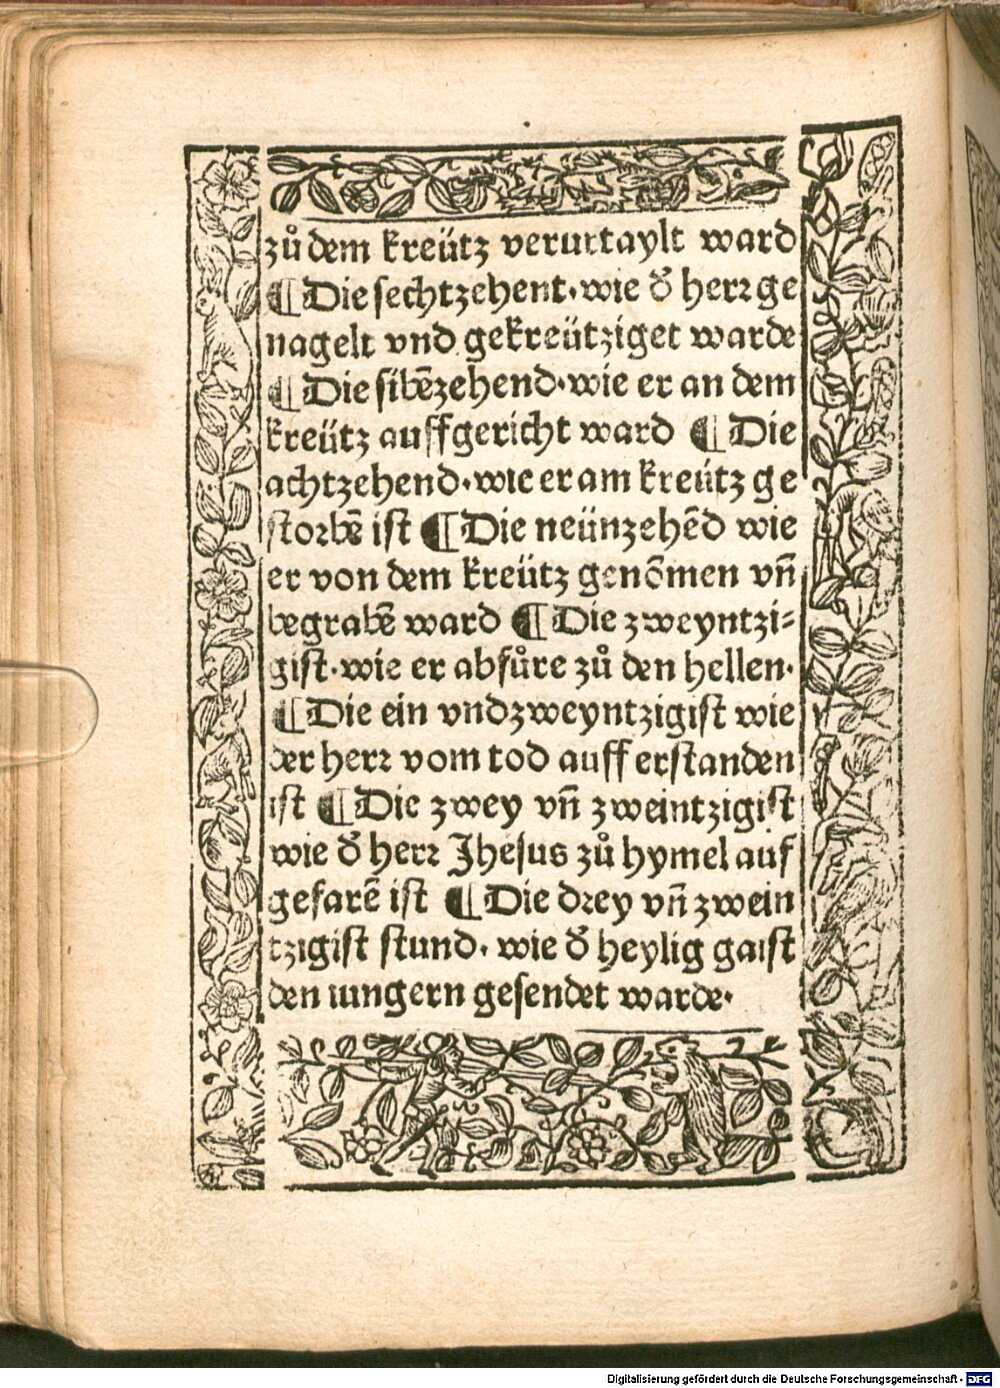 zů dem kreütz verurtaylt ward
¶ Die sechtzehent · wie d̄ herr ge
nagelt vnd gekreütziget warde
¶ Die sibēzehend · wie er an dem
kreütz auffgericht ward ¶ Die
achtzehend · wie er am kreütz ge
storbē ist ¶ Die neünzehēd wie
er von dem kreütz genōmen vñ
begrabē ward ¶ Die zweyntzi⸗
gist · wie er abfůre zů den hellen ·
¶ Die ein vnd zweyntzigist wie
der herr vom tod auff erstanden
ist ¶ Die zwey vñ zweintzigist
wie d̄ herr Jhesus zů hymel auf
gefarē ist ¶ Die drey vñ zwein
tzigist stund · wie d̄ heylig gaist
den iungern gesendet warde ·
Digitalisierung gefördert durch die Deutsche Forschungsgemeinschaft - DFG